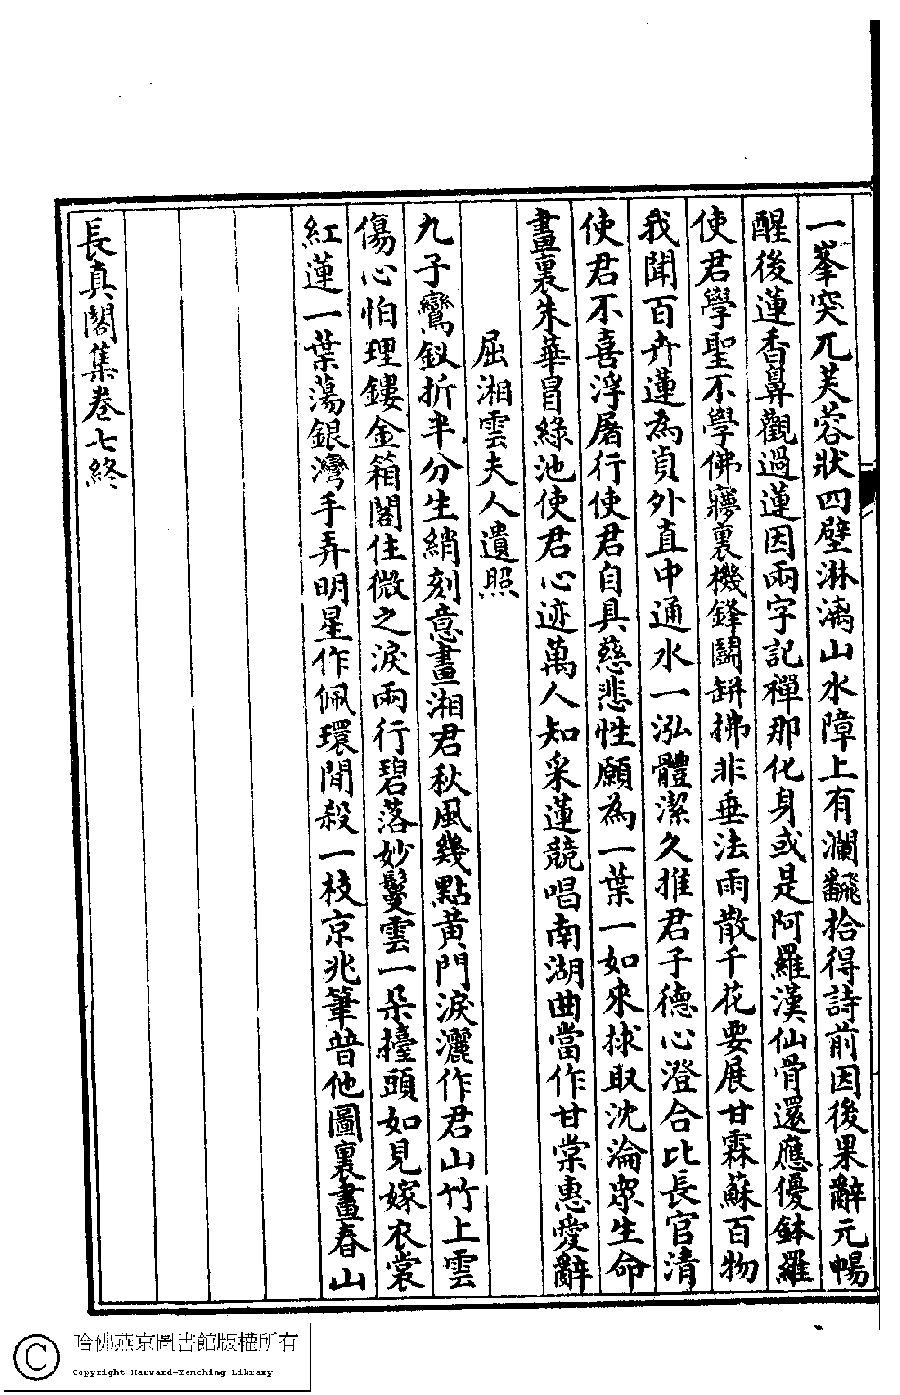 一峯突兀芙蓉狀四壁淋漓山水障上有瀾翻拾得詩前因後果辭元暢
醒後蓮香鼻觀過蓮因兩字記禪那化身或是阿羅漢仙骨還應優鉢羅
使君學聖不學佛寱裏機鋒鬭缾拂非垂法雨散千花要展甘霖蘇百物
我聞百卉蓮為貞外直中通水一泓體潔久推君子德心澄合比長官清
使君不喜浮屠行使君自具慈悲性願為一葉一如來捄取沈淪眾生命
畫裏朱華冒綠池使君心迹萬人知采蓮競唱南湖曲當作甘棠惠愛辭
屈湘雲夫人遺照
九子鸞釵折半分生綃刻意畫湘君秋風幾點黃門淚灑作君山竹上雲
傷心怕理鏤金箱閣住微之淚兩行碧落妙鬘雲一朵擡頭如見嫁衣裳
紅蓮一葉蕩銀灣手弄明星作佩環閒殺一枝京兆筆普他圖裏畫春山
長真閣集卷七終
哈佛燕京圖書館版權所有
Copyright Harvard-Yenching Library